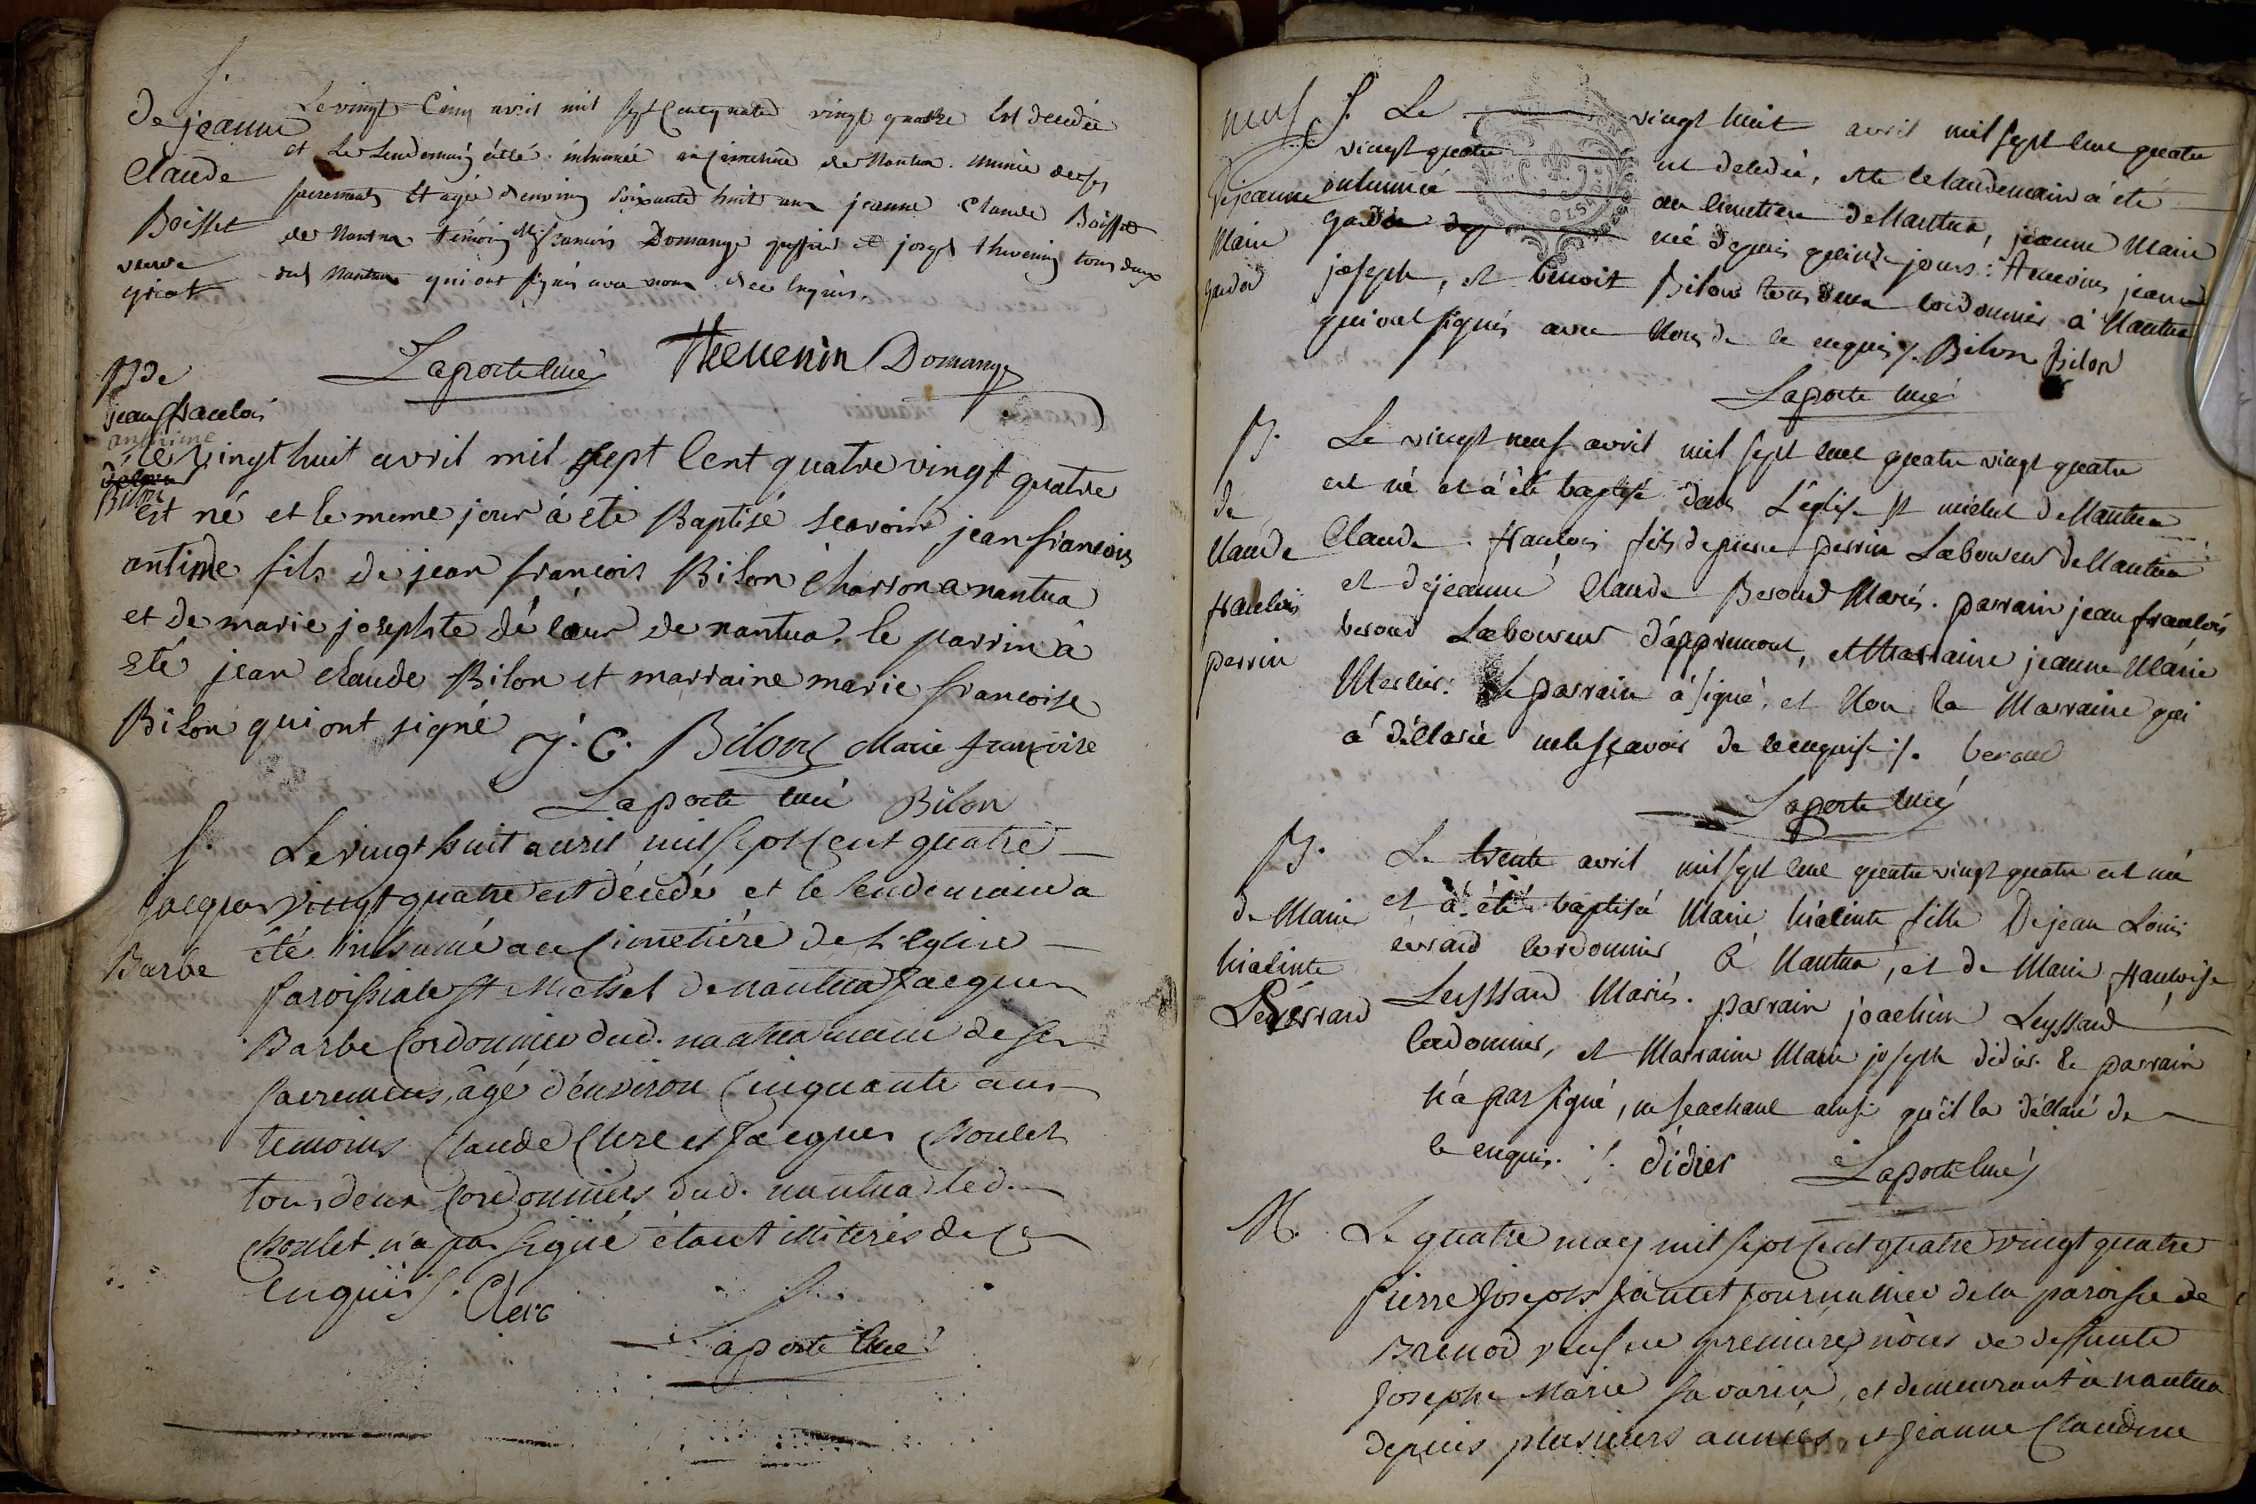 S.
de jeanne
Claude
Boisset
veuve
griot
Le vingt Cinq avril mil sept Cent quatre vingt quatre Est décédée
et Le Lendemain a été inhumée au Cimetiere de Nantua munie de ses
sacrements Et agée d'environ soixante huit ans jeanne Claude Boisset
de Nantua témoins francois Domange et joseph thevenin tous deux
dud Nantua qui ont signés avec nous de ce Enquis.
Laporte Curé Thevenin Domange
B de
jean francois
antime
Bilon
Le vingt huit avril mil sept Cent quatre vingt quatre
est né et le meme jour à été Baptisé scavoir jean francois
antime fils de jean francois Bilon Charron a nantua
et de marie josephte de nantua. le parrin à
eté jean claude Bilon et marraine marie francoise
Bilon qui ont signé J. C. Bilon Marie françoise
Laporte Curé Bilon
S.
jacques
Barbe
Le vingt huit avril mil sept Cent quatre
vingt quatre est décédé et le lendemain a
été inhumé au Cimetiére de L'Eglise
paroissiale St Michel de nantua Jacques
Barbe Cordonnier dud. nantua muni de ses
sacremens, âgé d'environ Cinquante ans
temoins Claude Clerc et Jacques Boulet
tous deux Cordonniers dud. nantua led.
Boulet n'a pas signé étant illiteré de ce
Enquis. Clerc
Laporte Curé
neuf
S.
de jeanne
Marie
gador
Le vingt huit avril mil sept cent quatre
vingt quatre est decedée, et le landemain à été
inhumée au Cimettiere de Nantua, jeanne Marie
née depuis quinze jours: temoins jeanne
joseph, et benoit Bilon tous deux Cordonniers à Nantua
qui ont signés avec Nous de ce enquis. Bilon Bilon
Laporte Curé
B.
de
Claude
francois
perrin
Le vingt neuf avril mil sept cent quatre vingt quatre
est né et a été baptisé dans L'église St michel de Nantua
Claude francois fils de pierre perrin Laboureur de Nantua
et de jeanne Claude Beroud Mariés. parrain jean francois
beroud Laboureur d'appremont, et Marraine jeanne Marie
Mercier. Le parrain à signé, et Non la Marraine qui
à déclarée ne le sçavoir de ce enquise. beroud
Laporte Curé
B.
de Marie
hiacinte
Levrard
Le trente avril mil sept cent quatre vingt quatre est née
et à été baptisée Marie hiacinte fille De jean Louis
évrard Cordonnier à Nantua, et de Marie francoise
Leyssard Mariés. parrain joachim Leyssard
Cordonnier, et Marraine Marie joseph didier. Le parrain
n'à pas signé, ne scachant ainsi qu'il la déclaré de
ce enquis. didier Laporte Curé
M.
Le quatre may mil sept Cent quatre vingt quatre
pierre Joseph Jantet journallier de la paroisse de
Brenod veuf en premieres nôces de deffunte
Josephe Marie Savarin, et demeurant à nantua
depuis plusieurs années, et Jeanne Claudine